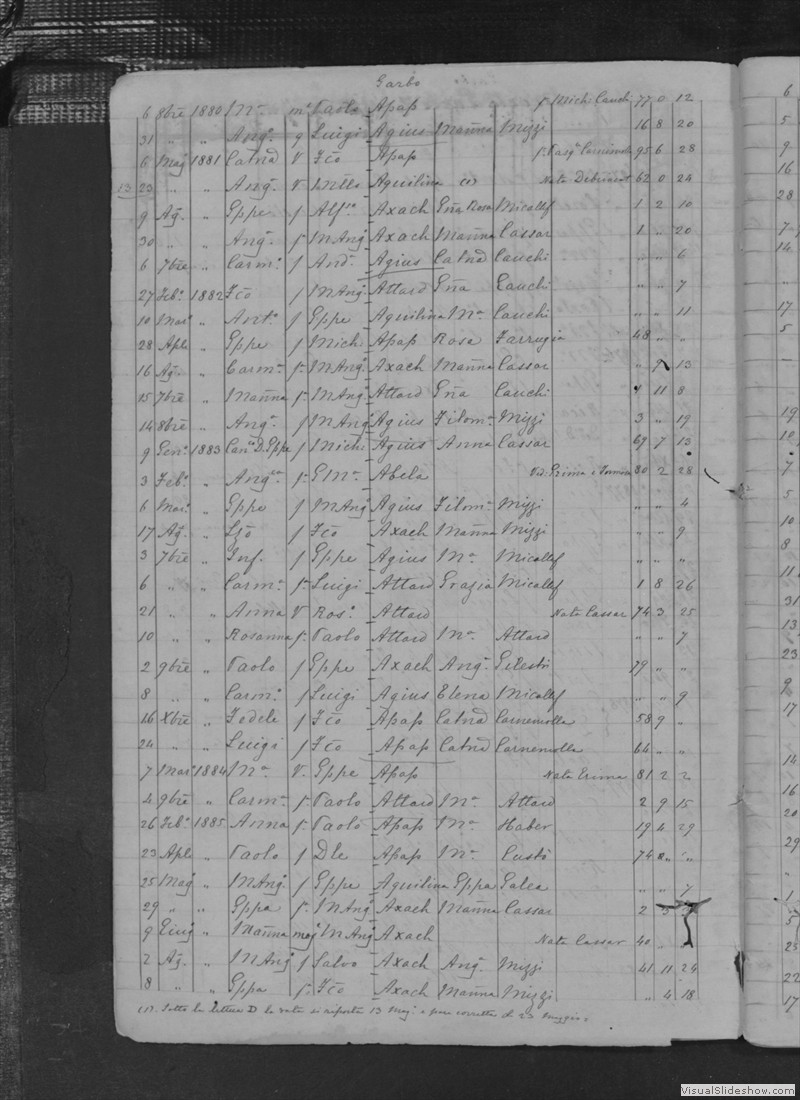 Garbo
6 8bre 1880 Ma mr Paolo Apap f. Mich: Cauchi 77 0 12
31 " " Anga g Luigi Agius Marina Mizzi 16 8 20
6 Mag 1881 Catna V Fco Apap 95 6 28
13 23 " " Anga V Agulina 62 0 24
9 Ag. " Gppe f Axach Gña Rosa Micallef 1 2 10
30 " " Ang. f MAng Axach Mañna Cassar 1 " 20
6 7bre " Carmo f And. Agius Catna Cauchi " " 6
27 Febo 1882 Fco f MAng Attard Gña Cauchi " " 7
10 Maro " Anto f Gppe Aquilina Ma Cauchi " " 11
28 Aple " Gppe f Mich Apap Rosa Farrugia 48 " "
16 Ag. " Carm f MAng Axach Mañna Cassar " 9 13
15 7bre " Mañna f MAng Attard Gña Cauchi 4 11 8
14 8bre " Ang. f MAng Agius Filoma Mizzi 3 " 19
9 Geno 1883 Cano D. Gppe f Mich Agius Anna Cassar 67 7 13
3 Febo " Angca f GMa Abela 80 2 28
6 Maro " Gppe f MAng Agius Filoma Mizzi " " 4
17 Ag. " f Fco Axach Mañna Mizzi " " 9
3 7bre " Inf. f Gppe Agius Ma Micallef " " "
6 " " Carma f Luigi Attard Grazia Micallef 1 8 26
21 " " Anna V Roso Attard Nata Cassar 74 3 25
10 " " Rosanna f Paolo Attard Ma Attard " " 7
2 9bre " Paolo f Gppe Axach Ang. 79 " "
8 " " Carmo f Luigi Agius Elena Micallef " " 9
16 Xbre " Fedele f Fco Apap Catna Carnemolla 58 9 "
24 " " Luigi f Fco Apap Catna Carnemolla 64 " "
7 Maro 1884 Ma V. Gppe Apap Nata 81 2 2
4 9bre " Carma f Paolo Attard Ma Attard 2 9 15
26 Febo 1885 Anna f Paolo Apap Ma Haber 19 4 29
23 Aple " Paolo f Dle Apap Ma 74 " "
25 Mag " MAng f Gppe Aquilina Gppa Galea " " 7
29 " " Gppa f MAng Axach Mañna Cassar 2 5
9 Giug " Mañna mog MAng Axach Nata Cassar 40 "
2 Ag. " MAng f Salvo Axach Ang. Mizzi 41 11 24
8 " " Gppa f Fco Axach Mañna Mizzi " 4 18
(1). Sotto la lettera D la data si riporta 13 Mag. e pare corretta di 23 Maggio.
6
5
9
16
28
7
14
"
17
5
19
10
7
5
10
8
11
31
13
23
9
17
14
16
20
29
1
5
23
22
17
VisualSlideshow.com